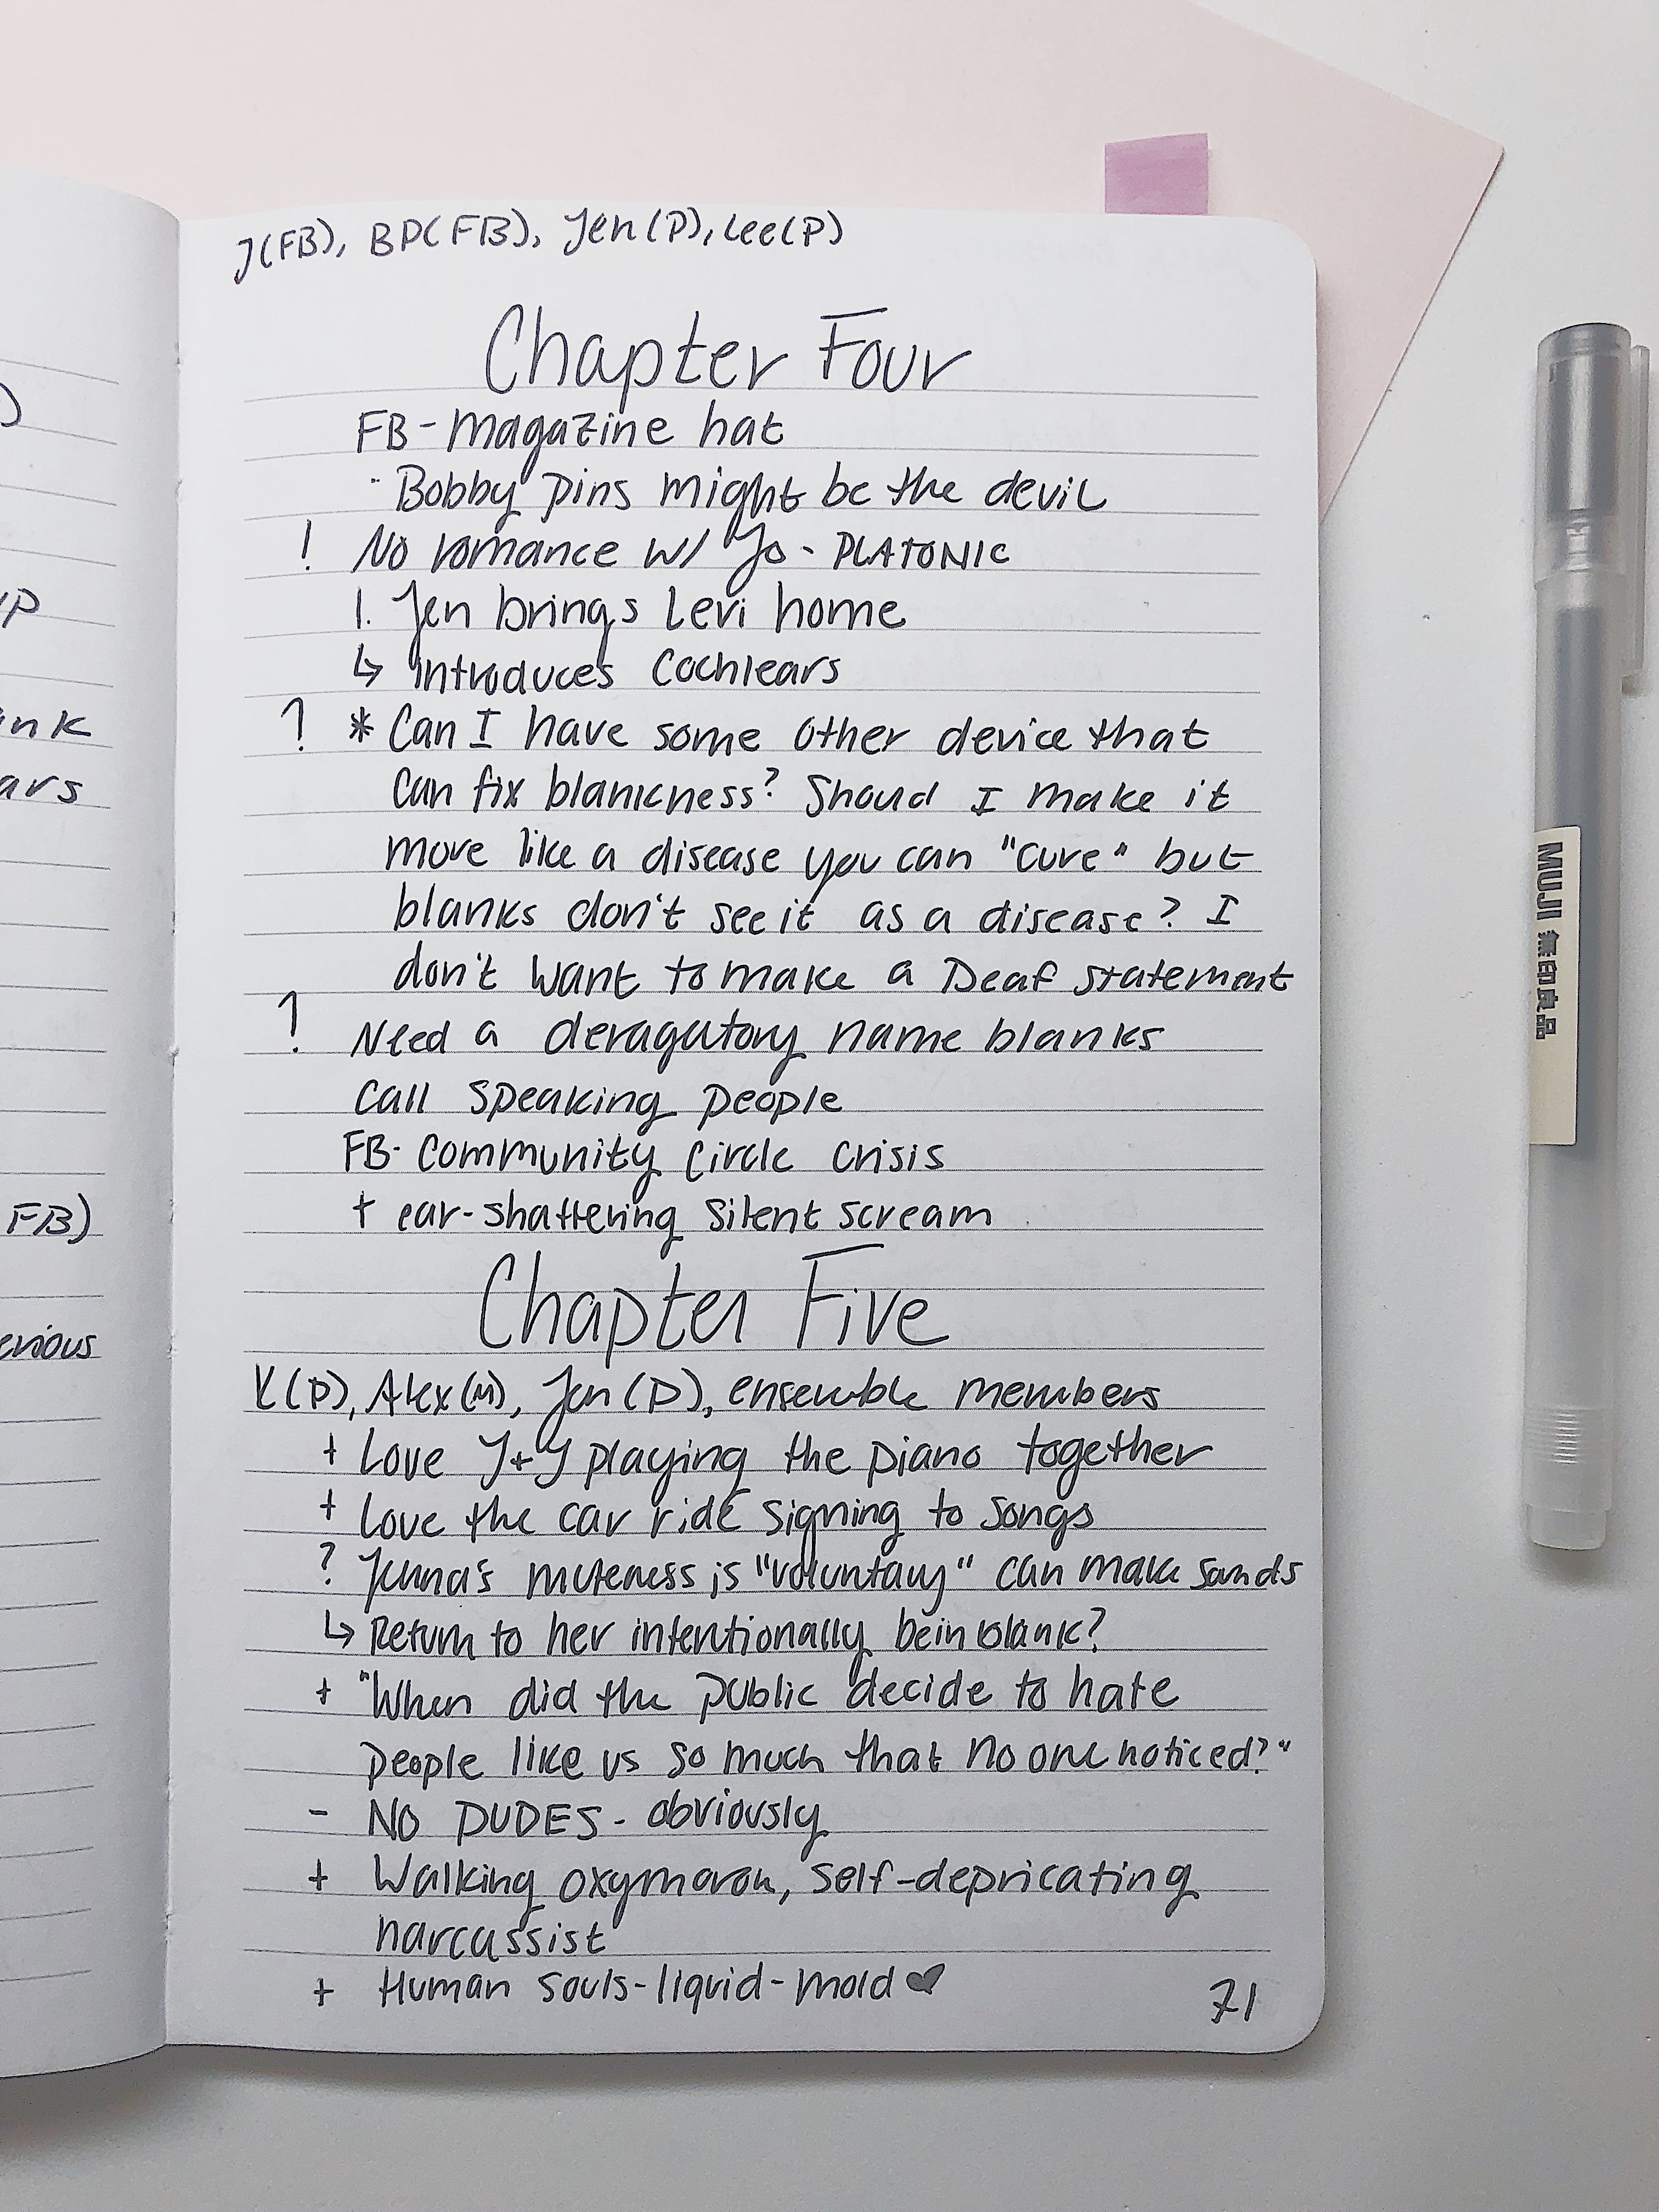 J(FB), BP(FB), Jen(P), Lee(P)
Chapter Four
FB - Magazine hat
- Bobby pins might be the devil
! No romance w/ Jo - PLATONIC
1. Jen brings Levi home
↳ Introduces Cochlears
? * Can I have some other device that
can fix blankness? Shoud I make it
more like a disease you can "cure" but
blanks don't see it as a disease? I
don't want to make a Deaf statement
? Need a deragatory name blanks
call speaking people
FB- Community Circle Crisis
+ ear-shattering silent scream
Chapter Five
K(P), Alex(M), Jen(P), ensemble members
+ Love J+J playing the piano together
+ Love the car ride signing to songs
? Jenna's muteness is "voluntary" can make sounds
↳ Return to her intentionally bein blank?
+ "When did the public decide to hate
people like us so much that no one noticed?"
- NO DUDES - obviously
+ Walking oxymoron, self-depricating
narcassist
+ Human souls-liquid-mold ♥
71
up
ink
ars
FB)
erious
MUJI 無印良品